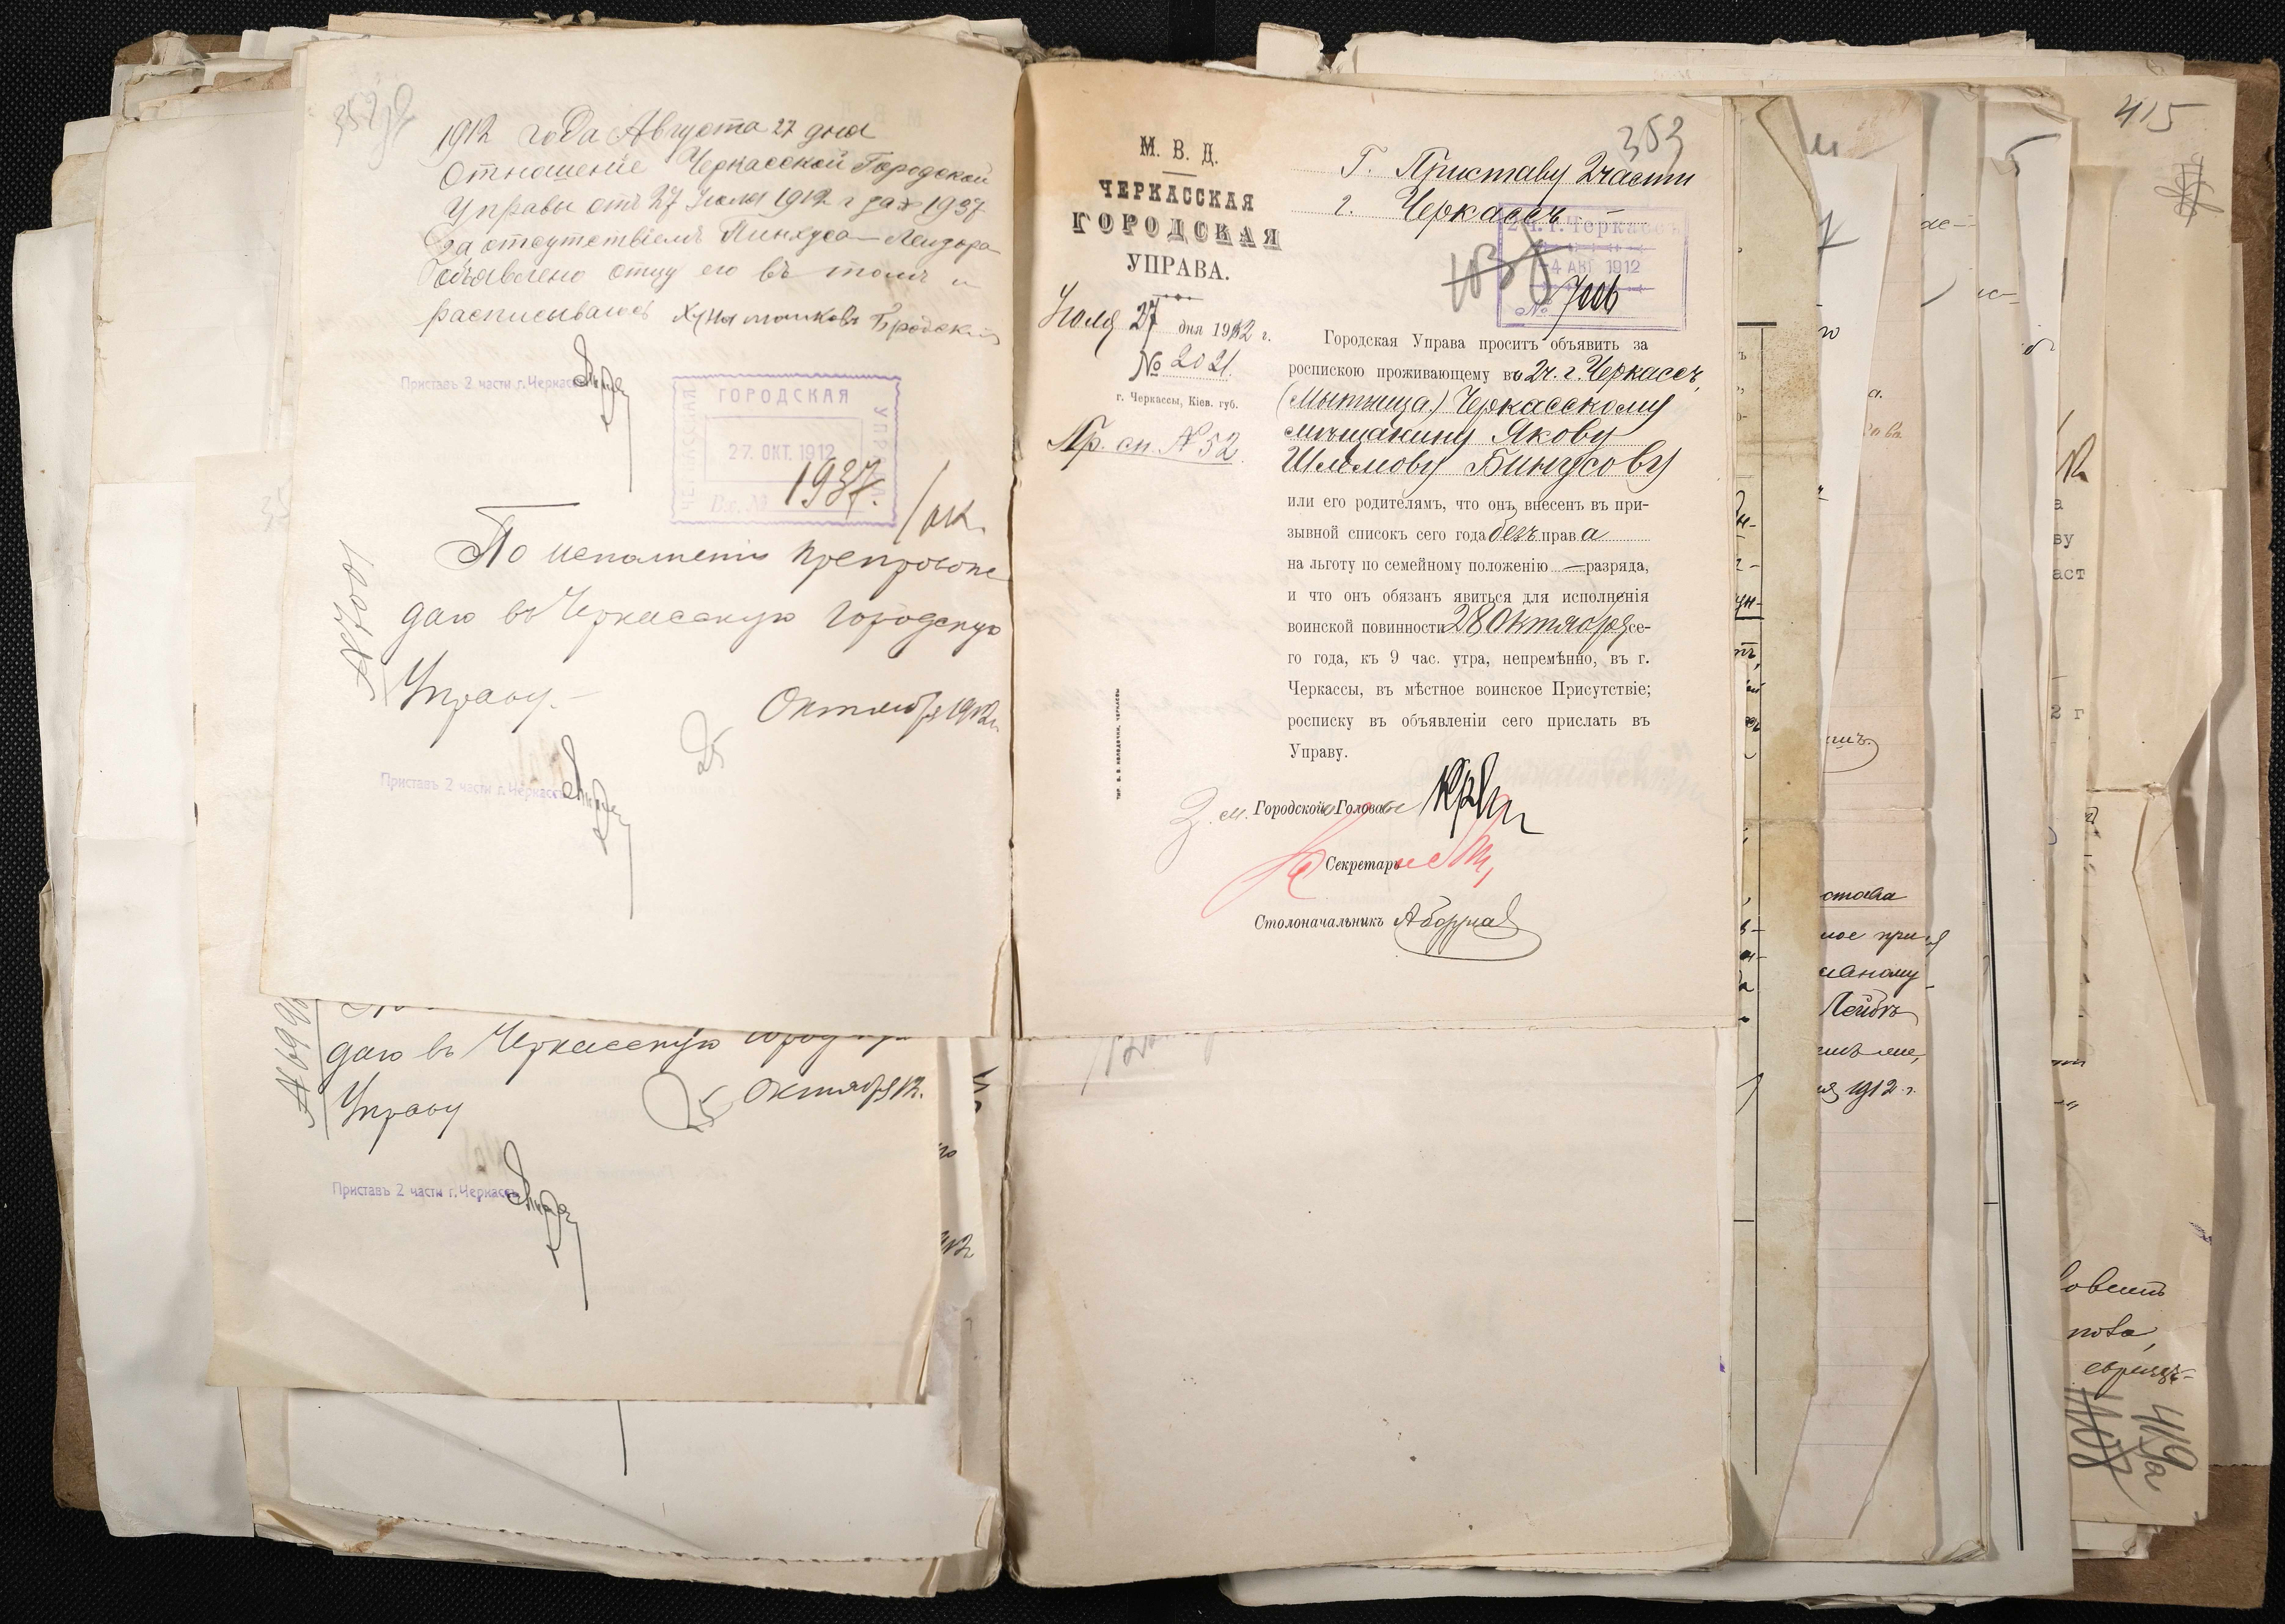 1912 года Августа 27 дня
Отношеніе Черкасской Городской
Управы отъ 27 Іюля 1912 г за № 1937
За отсутствіемъ Пинхуса-Лейзера
объявлено отцу его въ томъ и
расписываюсь Бродскій
Приставъ 2 части г. Черкассъ
ГОРОДСКАЯ
УПРАВА
27. ОКТ. 1912
Вх. №
1937.
По исполненіи препровож
даю въ Черкасскую Городскую
Управу.
25 Октября 1912 г.
№ 7001
Приставъ 2 части г. Черкассъ
даю въ Черкасскую
Управу
25 Октября 12.
№ 699
Приставъ 2 части г. Черкассъ
353
М. В. Д.
ЧЕРКАССКАЯ
ГОРОДСКАЯ
УПРАВА.
Іюля 27 дня 1912 г.
№ 2021.
г. Черкассы, Кіев. губ.
Пр. сп. № 52.
Г. Приставу 2 части
г. Черкассъ
2 ч. г. Черкассъ
4 АВГ 1912
№ 7006
Городская Управа проситъ объявить за
роспискою проживающему въ 2 ч. г. Черкассъ,
(Мытница) Черкасскому
мѣщанину Якову
Шлемову Бинусову
или его родителямъ, что онъ внесенъ въ при-
зывной списокъ сего года безъ права
на льготу по семейному положенію — разряда,
и что онъ обязанъ явиться для исполненія
воинской повинности 28 Октября се-
го года, къ 9 час. утра, непремѣнно, въ г.
Черкассы, въ мѣстное воинское Присутствіе;
росписку въ объявленіи сего прислать въ
Управу.
Зам. Городской Голова
Секретарь
Столоначальникъ
415
става
Лейбѣ
1912 г.
419а